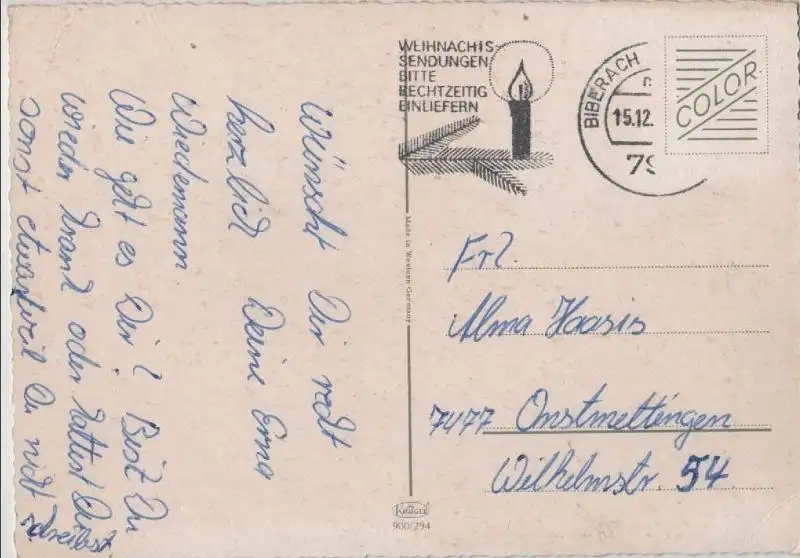 Wünscht Dir recht
herzlich Deine Erna
Wiedemann.
Wie geht es Dir? Bist Du
wieder krank oder hattest Du
sonst etwas, weil Du nicht
schreibst
WEIHNACHTS-
SENDUNGEN
BITTE
RECHTZEITIG
EINLIEFERN
BIBERACH
15.12.
79
COLOR
Made in Western Germany
Frl.
Alma Haasis
7477 Onstmettingen
Wilhelmstr. 54
KRÜGER
900/294